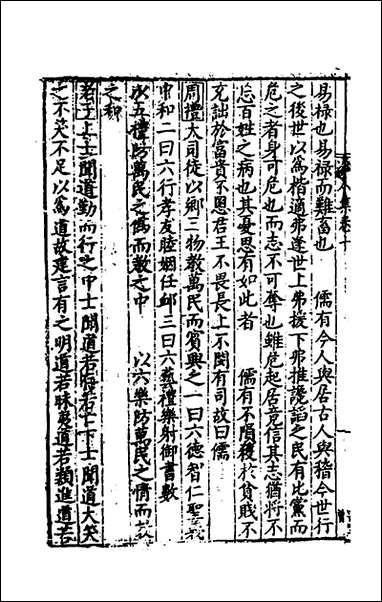 易祿也易祿而難畜也　儒有今人與居古人與稽今世行
之後世以為楷適弗逢世上弗援下弗推讒諂之民有比黨而
危之者身可危也而志不可奪也雖危起居竟信其志猶將不
忘百姓之病也其憂思有如此者　儒有不隕穫於貧賤不
充詘於富貴不慁君王不累長上不閔有司故曰儒
周禮大司徒以鄉三物教萬民而賓興之一曰六德智仁聖義
中和二曰六行孝友睦婣任卹三曰六藝禮樂射御書數
以五禮防萬民之偽而教之中　以六樂防萬民之情而教
之和
老子上士聞道勤而行之中士聞道若存若亡下士聞道大笑
之不笑不足以為道故建言有之明道若昧夷道若纇進道若